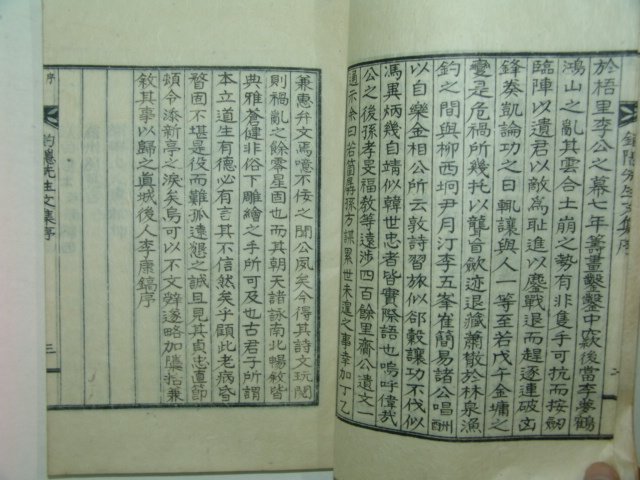 於梧里李公之幕七年籌畫鑿鑿中窾後當李夢鶴
鴻山之亂其雲合土崩之勢有非隻手可抗而按劒
臨陣以遺君以敵爲耻進以鏖戰退而趕逐連破凶
鋒奏凱論功之日輒讓與人一等至若戊午金墉之
變是危禍所幾托以聾盲歛迹退藏蕭散於林泉漁
釣之間與柳西坰尹月汀李五峯崔簡易諸公唱酬
以自樂金相公所云敦詩習旅似郤縠讓功不伐似
馮異炳幾自靖似韓世忠者皆實際語也嗚呼偉哉
公之後孫孝旻福敎等遠涉四百餘里齎公遺文一
通示余曰若箇孱孫方謀累世未遑之事幸加丁乙
釣隱先生文集序
二
兼惠弁文焉噫不佞之聞公夙矣今得其詩文玩閱
則禍亂之餘零星固也而其朝天諸詠南北暢敘皆
典雅蒼健非俗下雕繪之手所可及也古君子所謂
本立道生有德必有言其不信然矣乎顧此老病昏
瞀固不堪是役而難孤遠懇之誠且見其貞忠直節
頓令添新亭之淚矣烏可以不文辤遂略加隱栝兼
敘其事以歸之眞城後人李康鎬序
序
釣隱先生文集序
三